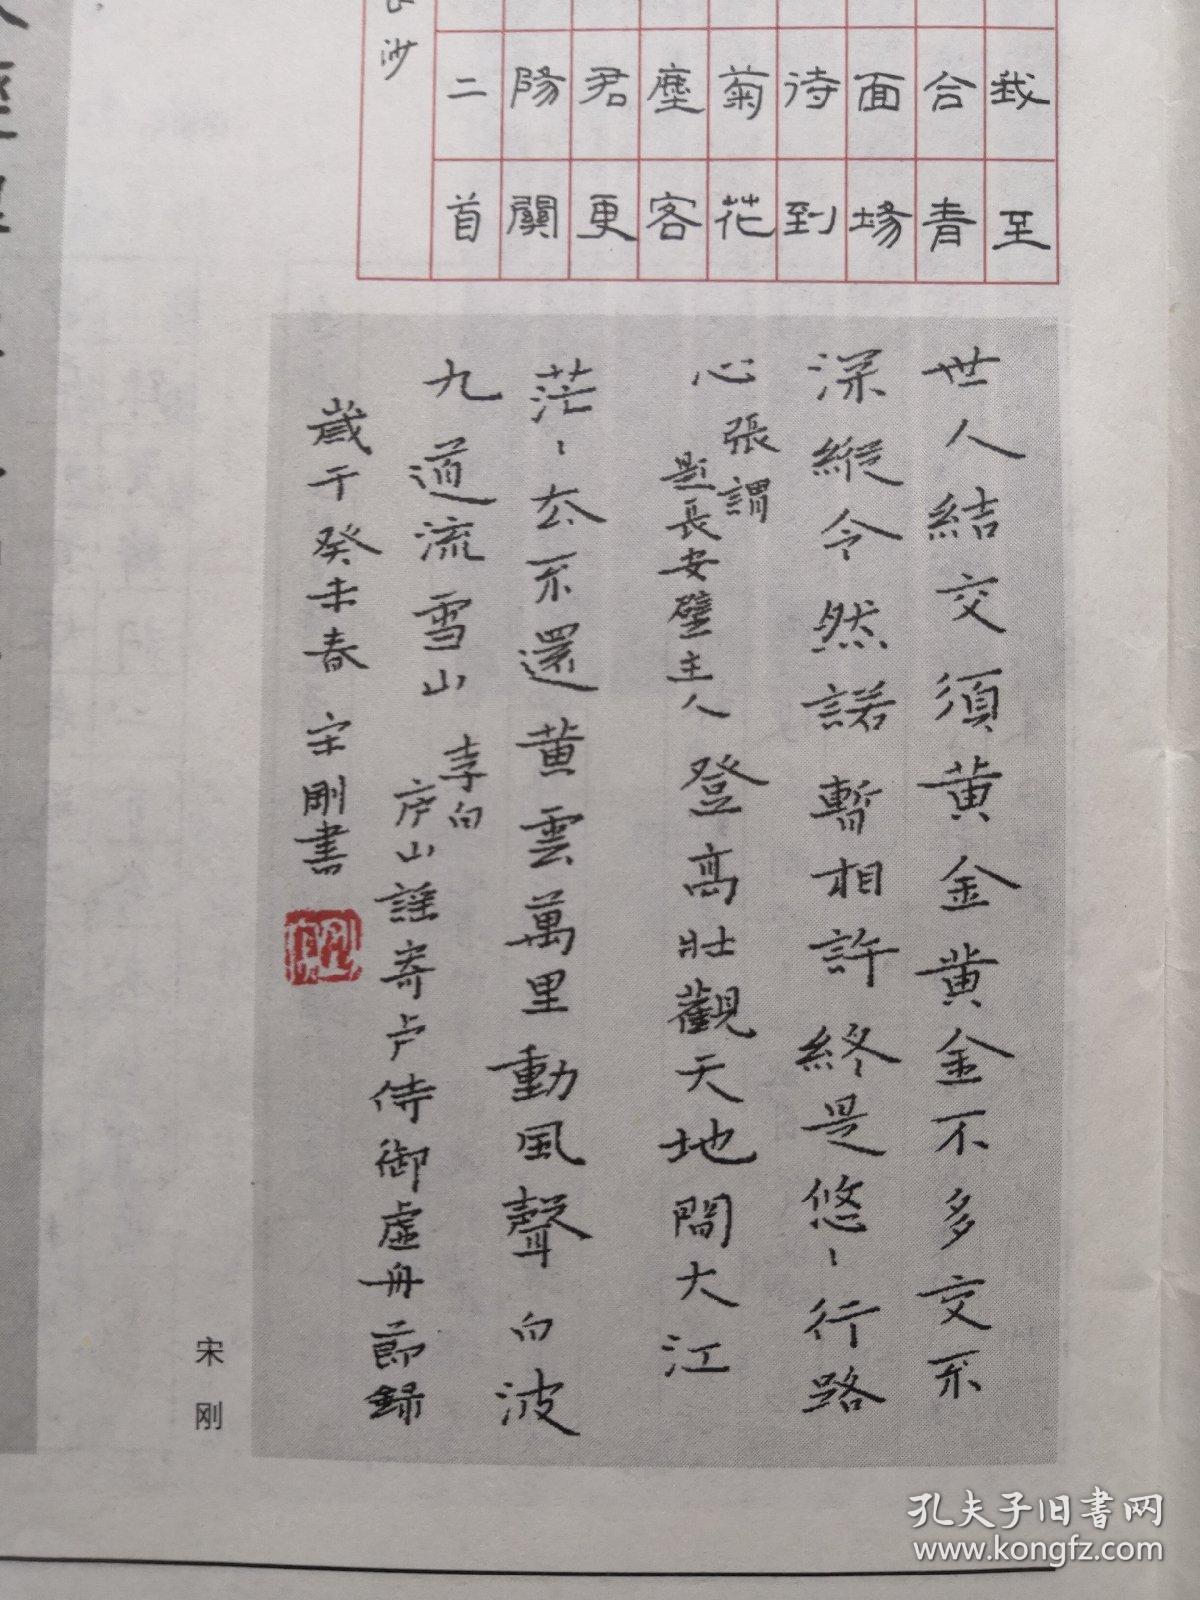 我至
合青
面場
待到
菊花
塵客
君更
陽關
二首
沙
世人結交須黃金黃金不多交不
深縱令然諾暫相許終是悠、行路
心 張謂
題長安壁主人 登高壯觀天地間大江
茫、去不還黃雲萬里動風聲白波
九道流雪山 李白
庐山謠寄卢侍御虛舟節録
歲干癸未春 宋剛書
宋刚
孔夫子旧书网
www.kongfz.com